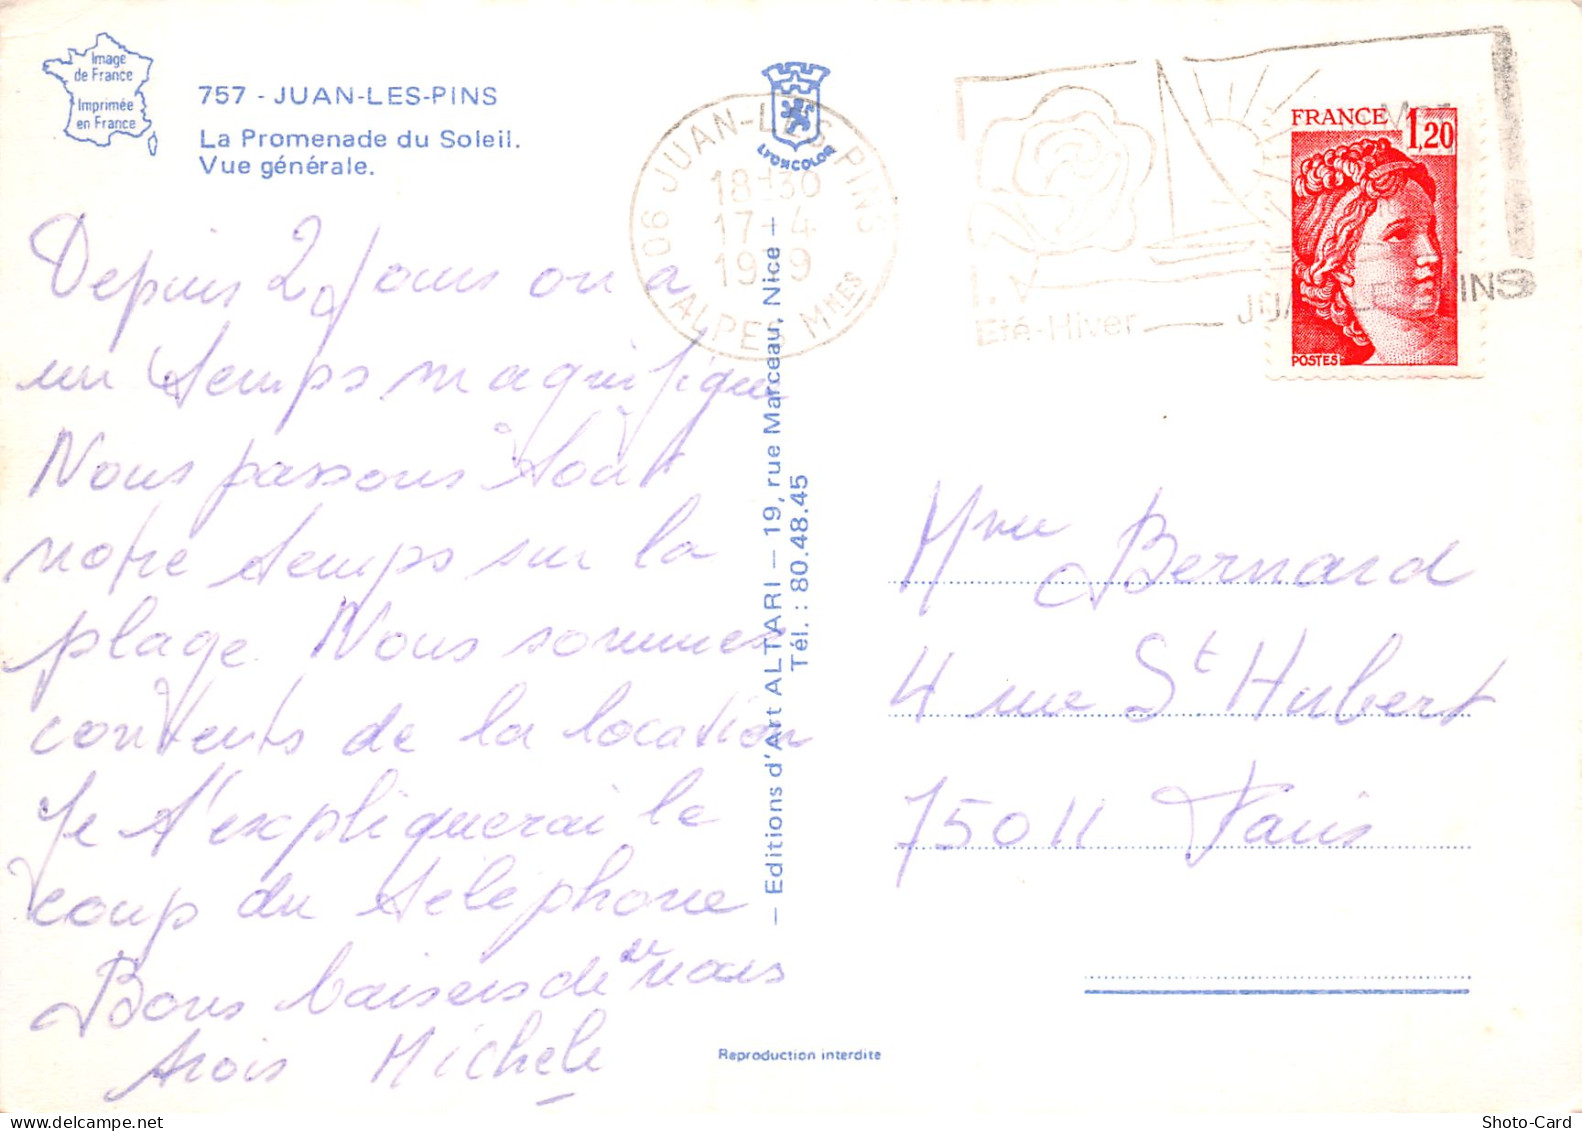 Image
de France
Imprimée
en France
757 - JUAN-LES-PINS
La Promenade du Soleil.
Vue générale.
Depuis 2 jours on a
un temps magnifique
Nous passons tout
notre temps sur la
plage. Nous sommes
contents de la location
Je t'expliquerai le
coup du téléphone
Bons baisers de nous
trois Michele
LYONCOLOR
— Editions d'Art ALTARI — 19, rue Marceau, Nice +
Tél. : 80.48.45
Reproduction interdite
06 JUAN-LES-PINS
18-30
17-4
1979
ALPES MMES
Eté-Hiver
FRANCE 1,20
POSTES
Mme Bernard
4 rue St Hubert
75011 Paris
Shoto-Card